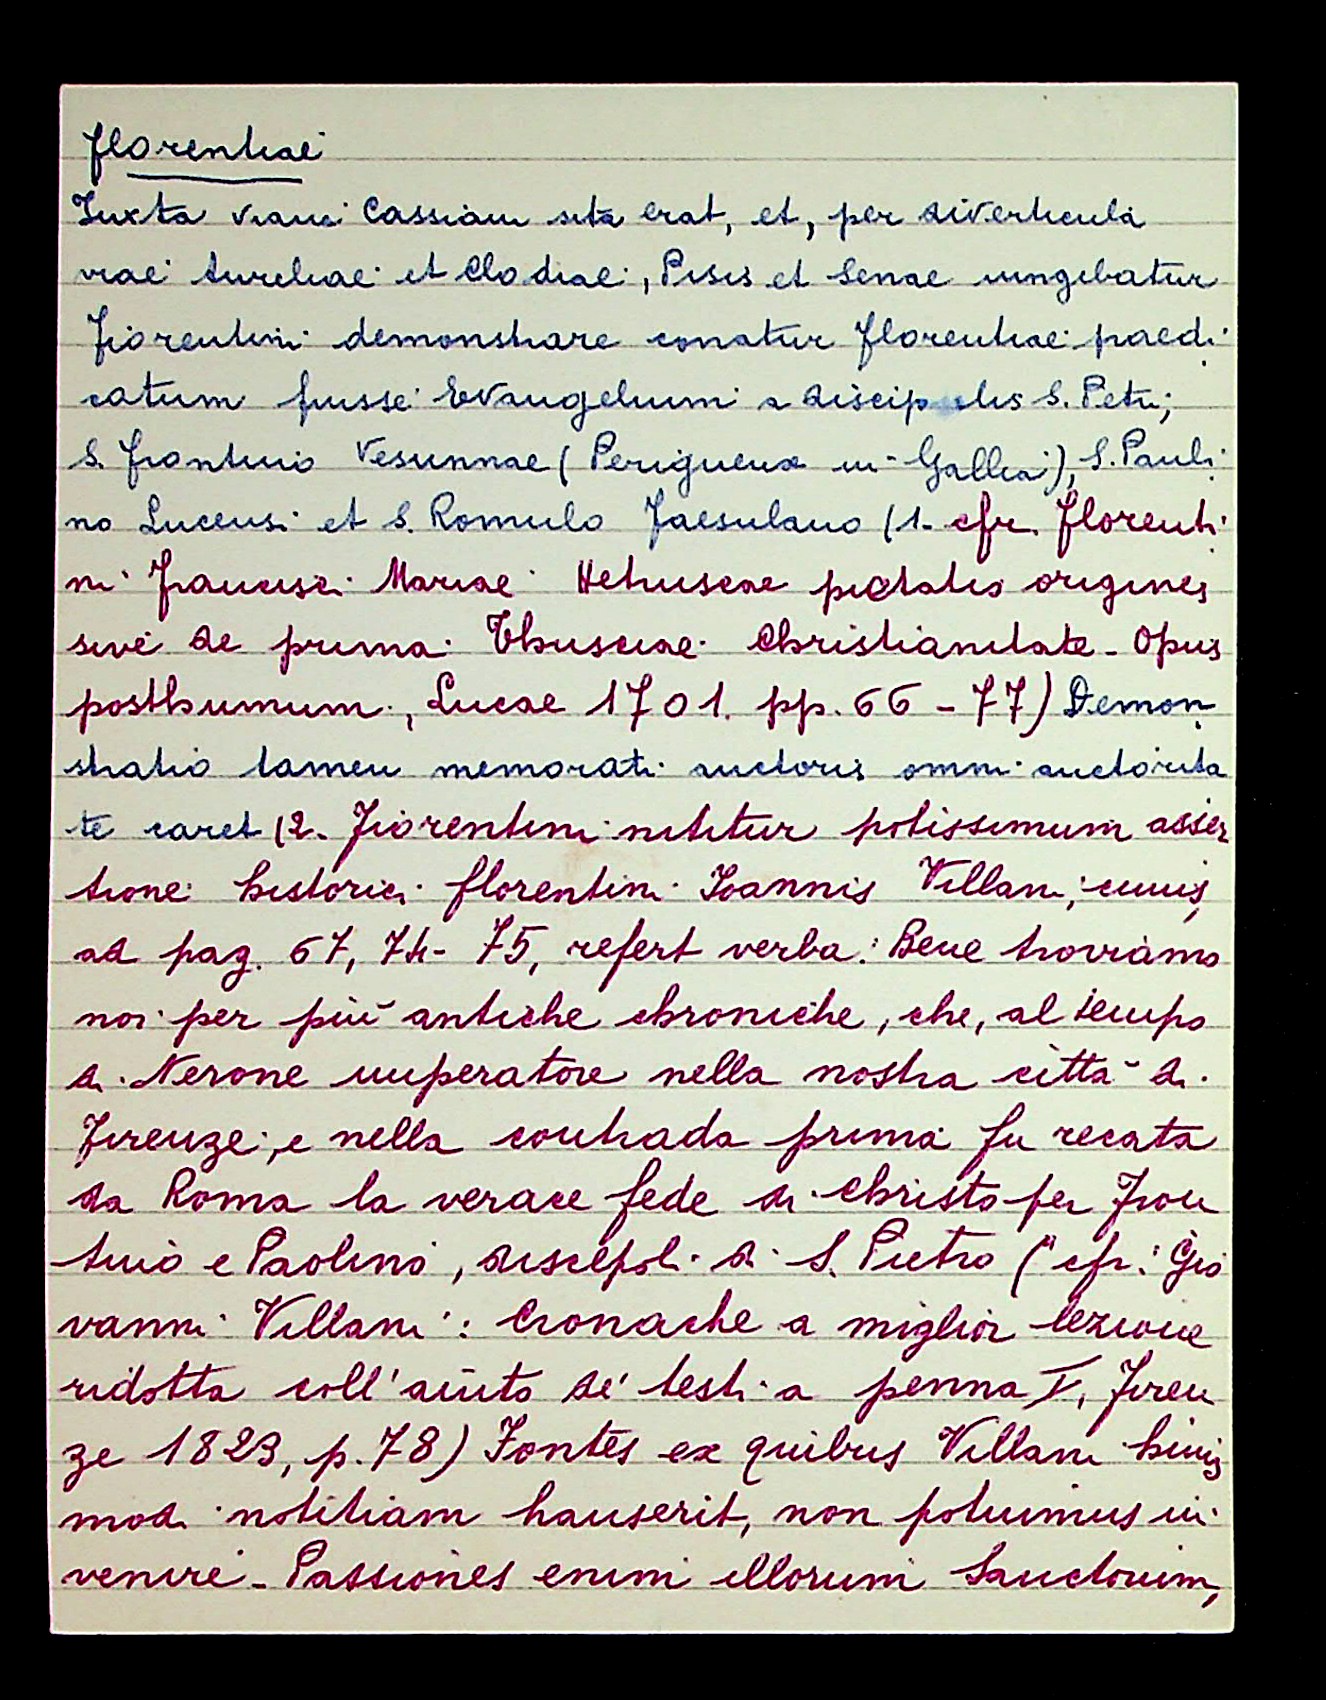 Florentiae
Iuxta viam Cassiam sita erat, et, per diverticula
viae Aureliae et Clodiae, Pisis et Senae iungebatur
Fiorentini demonstrare conatur Florentiae praedi
catum fuisse Evangelium a discipulis S. Petri;
S. Frontinio Vesunnae (Perigueux in Gallia), S. Pauli
no Lucensi et S. Romulo Faesulano (1. cfr. Florenti
ni Francisci Mariae Hetruscae pietatis origines
sive de prima Thusciae Christianitate - Opus
posthumum, Lucae 1701. pp. 66 - 77) Demon
stratio tamen memorati auctoris omni auctorita
te caret (2. Fiorentini nititur potissimum asser
tione historici florentini Ioannis Villani, cuius,
ad pag. 67, 74 - 75, refert verba: Bene troviamo
noi per più antiche chroniche, che, al tempo
di Nerone imperatore nella nostra città di
Firenze, e nella contrada prima fu recata
da Roma la verace fede di Christo per Fron
tinio e Paolino, discepoli di S. Pietro (" cfr: Gio
vanni Villani: Cronache a miglior lezione
ridotta coll'aiuto de' testi a penna I, Firen
ze 1823, p. 78) Fontes ex quibus Villani huius
modi notitiam hauserit, non potuimus in
venire - Passiones enim illorum Sanctorum,